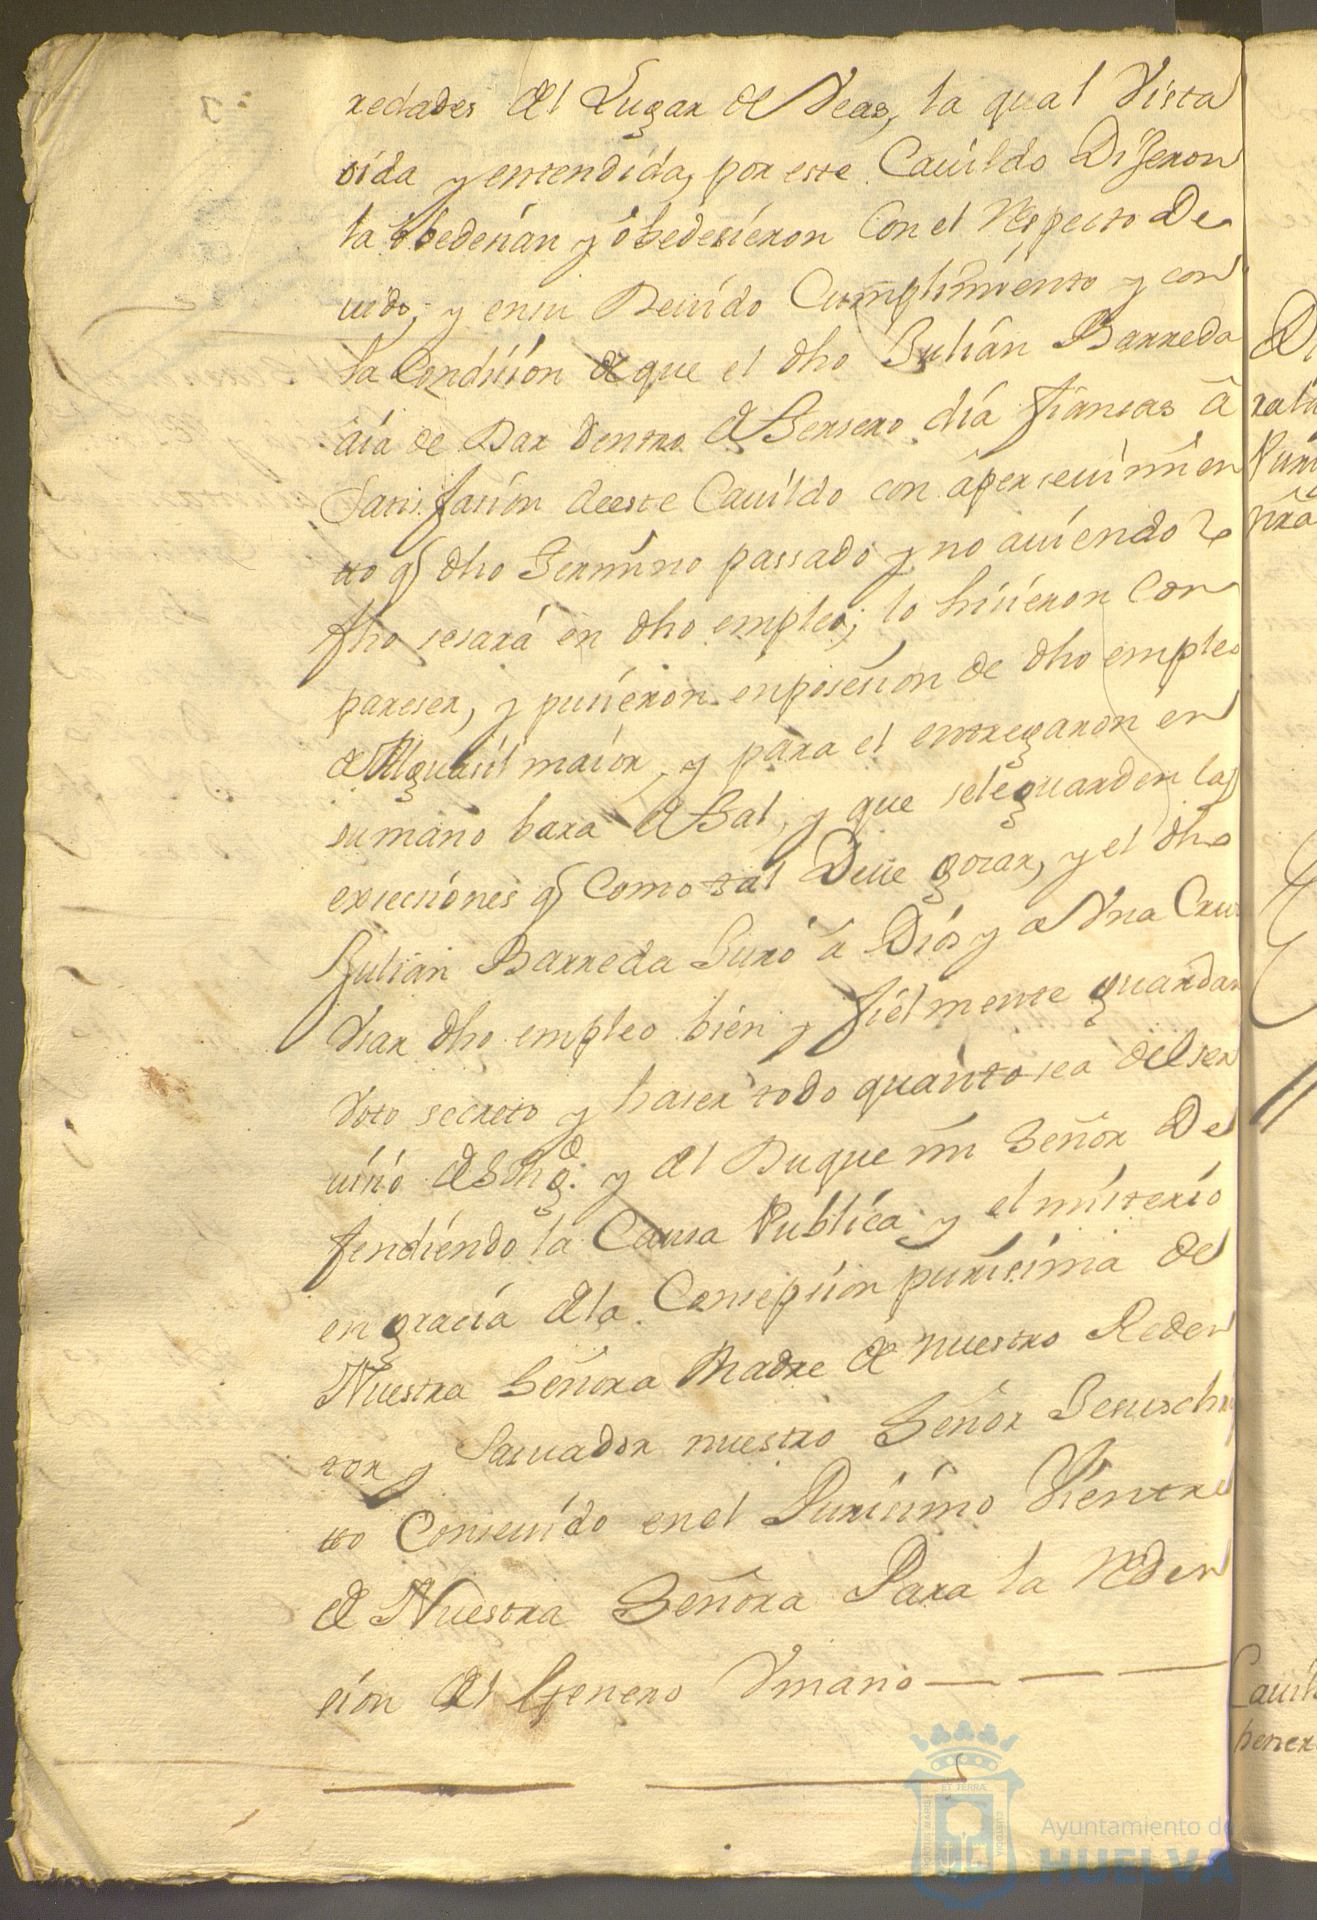 redades del Lugar de Veas, la qual Vista
oida y entendida, por este Cavildo Dijeron
la obedesian y obedesieron Con el Respecto De
uido, y en su Deuido Cumplimiento y con
la Condision de que el dho Julian Barreda
aia de Dar dentro de tersero dia fiansas â
Satisfasion deeste Cauildo con âperseuimien
tto q dho termino passado y no auiendo lo
fho sesará en dho empleo; lo hisieron Con
pareser, y pusieron en posesion de dho empleo
de Alguasil maior, y para el entregaron en
su mano bara de tal, y que sele guarden las
exsecsiones q Como tal Deue gosar, y el dho
Julian Barreda Juró â Dios y a Vna Crus
Vsar dho empleo bien y fielmente guardar
Voto secreto y haser todo quanto sea del ser
uisio de S Mg. y del Duque mi Señor De
fendiendo la Causa Publica y el misterio
en gracia dela Consepsion purisima de
Nuestra Señora Madre de nuestro Reden
tor y Saluador nuestro Señor Jesuschris
tto Conseuido en el Purisimo Vientre
de Nuestra Señora Para la Reden
sion del Genero Vmano
Ayuntamiento de
HUELVA